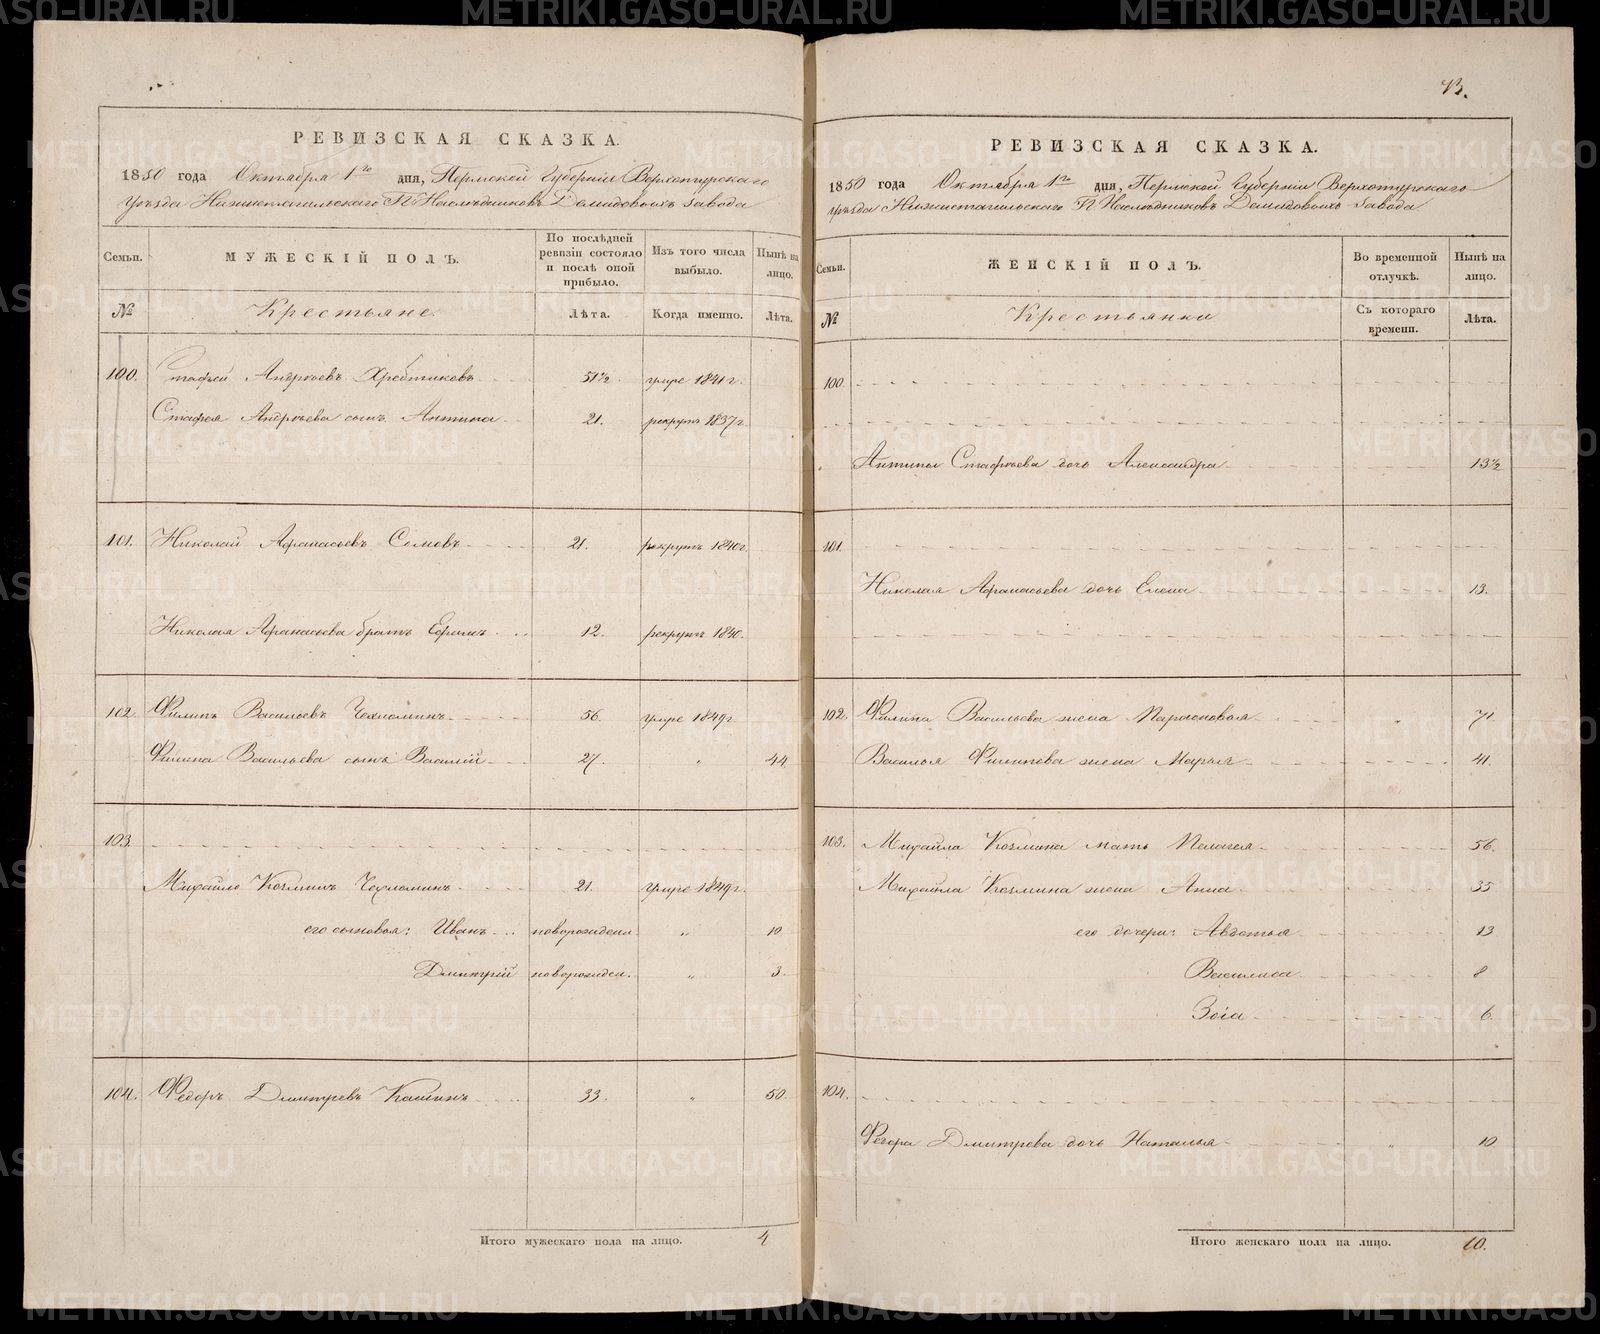 РЕВИЗСКАЯ СКАЗКА.
1850 года Октября 1го дня, Пермской Губернiи Верхотурскаго
уѣзда Нижнетагильскаго Гг. Наслѣдниковъ Демидовыхъ Завода
Семьи.
МУЖЕСКIЙ ПОЛЪ.
По послѣдней ревизiи состояло и послѣ оной прибыло.
Изъ того числа выбыло.
Нынѣ на лицо.
№
Крестьяне.
Лѣта.
Когда именно.
Лѣта.
100. Стафей Андреевъ Хребтиковъ 51½ умре 1841 г.
Стафея Андреева сынъ Антипа 21. рекрутъ 1837 г.
101. Николай Афанасьевъ Сомовъ 21. рекрутъ 1840 г.
Николая Афанасьева братъ Ефимъ 12. рекрутъ 1840.
102. Филипъ Васильевъ Чехломинъ 56. умре 1849 г.
Филипа Васильева сынъ Василiй 27. " 44.
103.
Михайло Козминъ Чехломинъ 21. умре 1849 г.
его сыновья: Иванъ новорожден. " 10
Дмитрiй новорожден. " 3.
104. Федоръ Дмитревъ Кашинъ 33. " 50.
Итого мужескаго пола на лицо. 4
73.
РЕВИЗСКАЯ СКАЗКА.
1850 года Октября 1го дня, Пермской Губернiи Верхотурскаго
уѣзда Нижнетагильскаго Гг. Наслѣдниковъ Демидовыхъ Завода
Семьи.
ЖЕНСКIЙ ПОЛЪ.
Во временной отлучкѣ.
Нынѣ на лицо.
№
Крестьянки
Съ котораго времени.
Лѣта.
100.
Антипы Стафеева дочь Александра 13½
101.
Николая Афанасьева дочь Елена 13.
102. Филипа Васильева жена " 71.
Василья Филипова жена Марья 41.
103. Михайла Козмина мать Пелагея 56.
Михайла Козмина жена Анна 35
его дочери: Авдотья 13
Василиса 8
Зоiя 6.
104.
Федора Дмитрева дочь Наталья " 10
Итого женскаго пола на лицо. 10.
METRIKI.GASO-URAL.RU